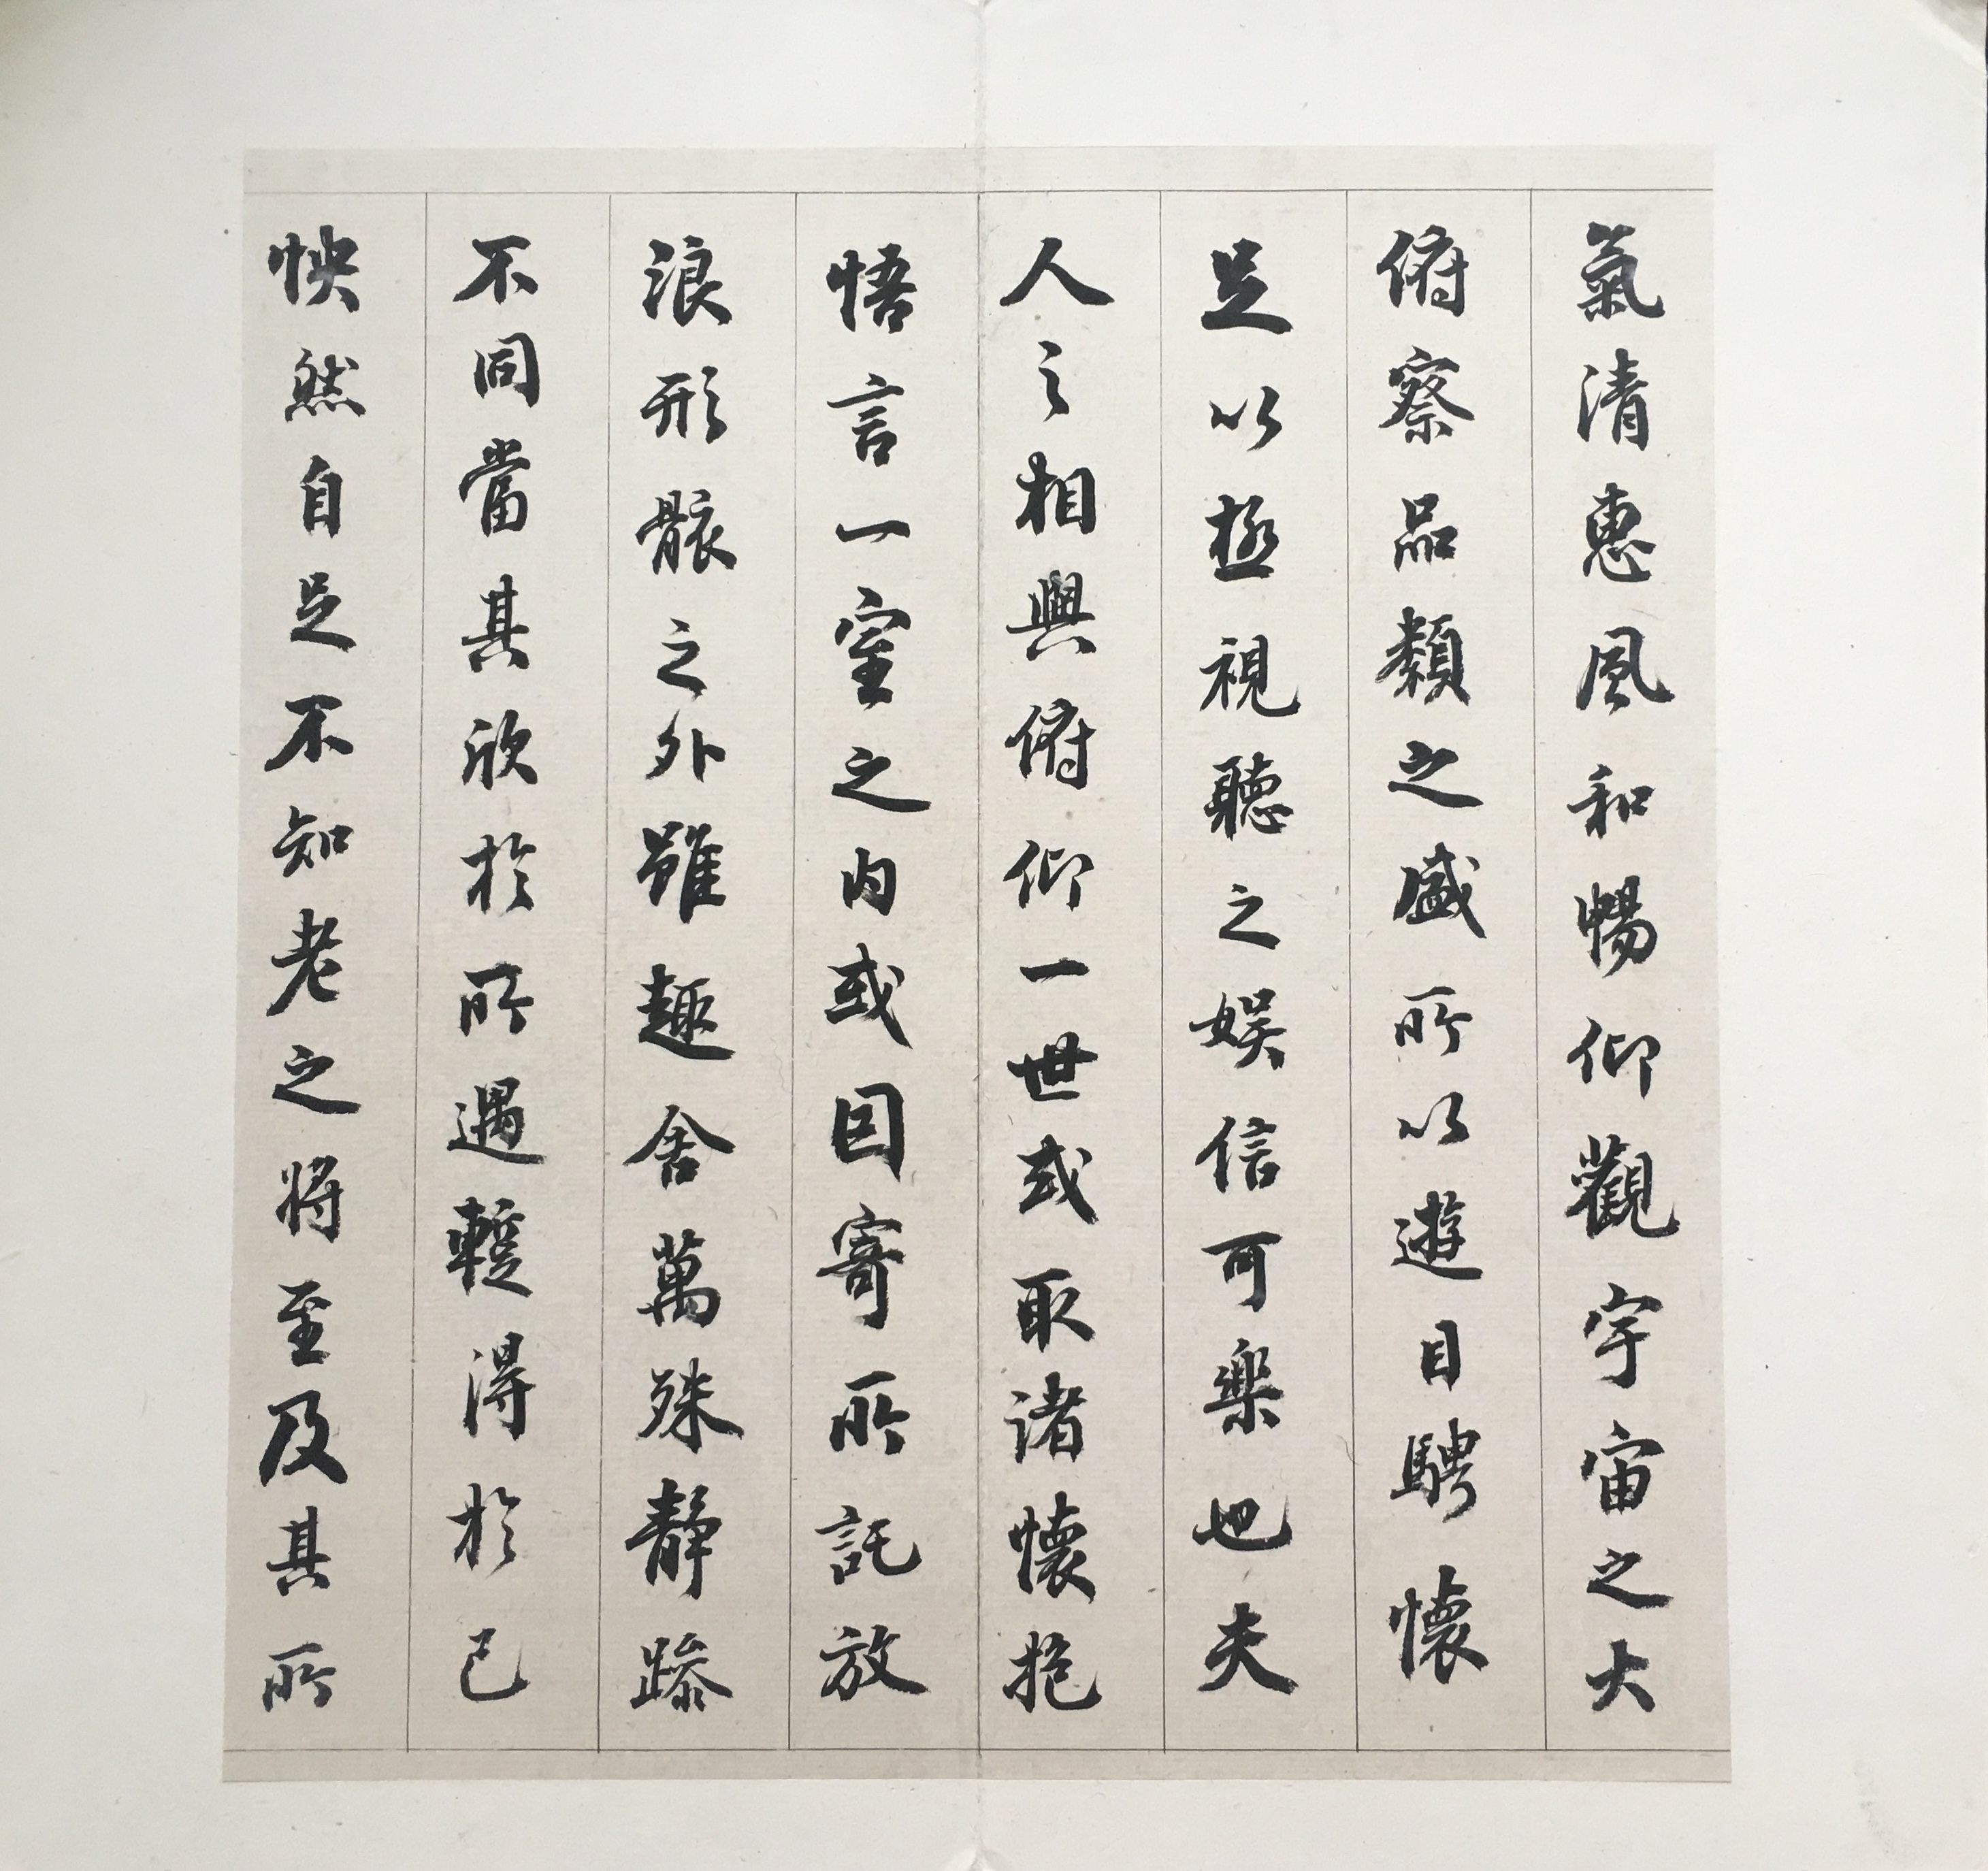 氣清惠風和暢仰觀宇宙之大
俯察品類之盛所以遊目騁懷
足以極視聽之娛信可樂也夫
人之相與俯仰一世或取諸懷抱
悟言一室之內或因寄所託放
浪形骸之外雖趣舍萬殊靜躁
不同當其欣於所遇蹔得於己
怏然自足不知老之將至及其所